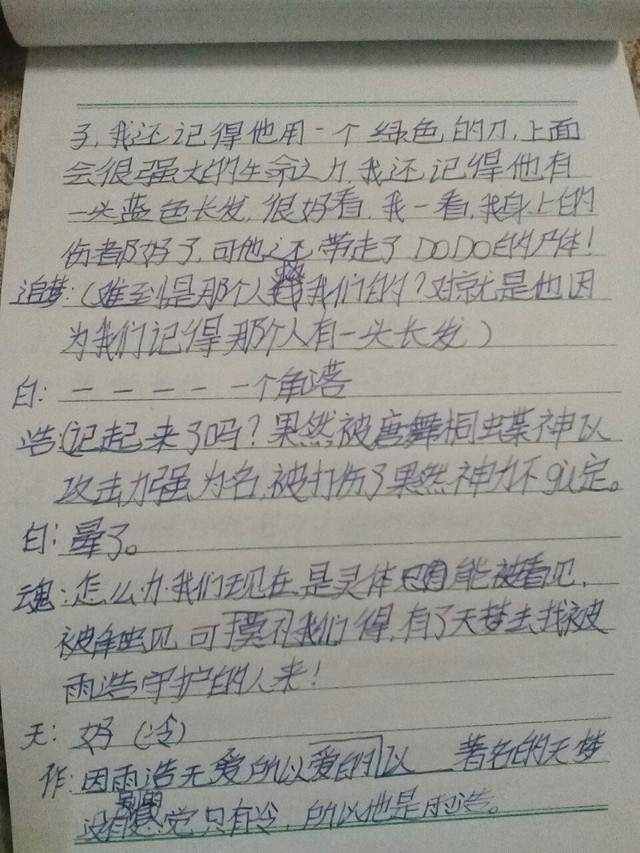 子,我还记得他用一个绿色的刀,上面
会很强大的生命之力,我还记得他有
一头蓝色长发,很好看,我一看,我身上的
伤者都好了,可他还带走了DODO的尸体!
追梦:(难到是那个人我们的?对就是他因
为我们记得那个人有一头长发)
白:一一一一一个角落
浩(记起来了吗?果然被唐舞桐蝶神以
攻击力强为名,被打伤了果然神力不gu定。
白:晕了。
魂:怎么办我们现在是灵体只能被看见,
被触见可摸不我们得,有了天梦去找被
雨浩守护的人来!
天:好(冷)
作:因雨浩无爱所以爱的以 著名的天梦
没有感觉只有冷,所以他是雨浩。